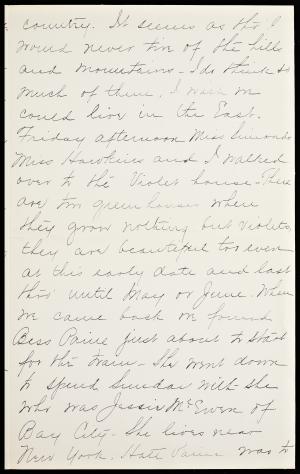 country. It seems as tho' I
would never tire of the hills
and mountains - I do think so
much of them. I wish we
could live in the East.
Friday afternoon Miss Simonds
Miss Hawkins and I walked
over to the Violet house. There
are two green houses where
they grow nothing but violets,
they are beautiful too even
at this early date and last
this until May or June. When
we came back we found
Bess Paine just about to start
for the train. She went down
to spend Sunday with she
who was Jessie McEwen of
Bay City. She lives near
New York. Paine was to